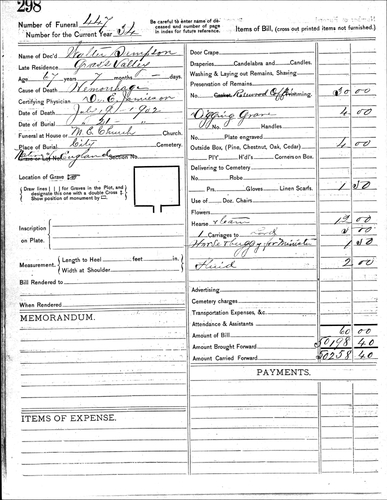 298
Number of Funeral 447
Number for the Current Year 34
Be carefully to enter name of deceased and number of page in index for future reference.
Items of Bill, (cross out printed items not furnished.)
Name of Dec'd Walter Simpson
Late Residence Grass Valley
Age 67 years 7 months - days.
Cause of Death Hemorrhage
Certifying Physician Dr. C. Jamieson
Date of Death July 19 1902
Date of Burial " 21 - "
Funeral at House or M. E. Church Church.
Place of Burial City Cemetery.
Native of England Section No.
Location of Grave
Draw lines for Graves in the Plot, and designate this one with a double Cross X
Show position of monument by □
Inscription on Plate.
Measurement. Length to Heel feet in.
Width at Shoulder
Bill Rendered to
When Rendered
MEMORANDUM.
ITEMS OF EXPENSE.
Door Crape
Draperies Candelabra and Candles.
Washing & Laying out Remains, Shaving,
Preservation of Remains
No. Casket Rosewood Coffin Lining. 30 00
Digging Grave 4 00
No. Handles.
Plate engraved
Outside Box, (Pine, Chestnut, Oak, Cedar) 4 00
PIV H'd'l's Corners on Box.
Delivering to Cemetery
No. Robe
Prs. Gloves Linen Scarfs. 1 50
Use of Doz. Chairs
Flowers
Hearse & team 12 00
1 Carriages to
Horse & buggy for Minister 1 50
Fluid 2 00
Advertising
Cemetery charges
Transportation Expenses, &c.
Attendance & Assistants
Amount of Bill 60 00
Amount Brought Forward 50198 40
Amount Carried Forward 50258 40
PAYMENTS.